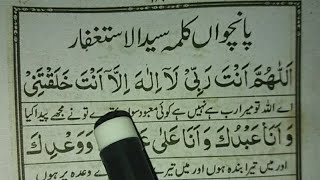 پانچواں کلمہ سید الاستغفار
اَللّٰهُمَّ اَنْتَ رَبِّیْ لَآ اِلٰهَ اِلَّا اَنْتَ خَلَقْتَنِیْ
اے اللہ تو میرا رب ہے نہیں ہے کوئی معبود سوا تیرے تو نے مجھے پیدا کیا
وَاَنَا عَبْدُكَ وَاَنَا عَلٰی وَوَعْدِكَ
اور میں تیرا بندہ ہوں اور میں تیرے وعدہ پر ہوں